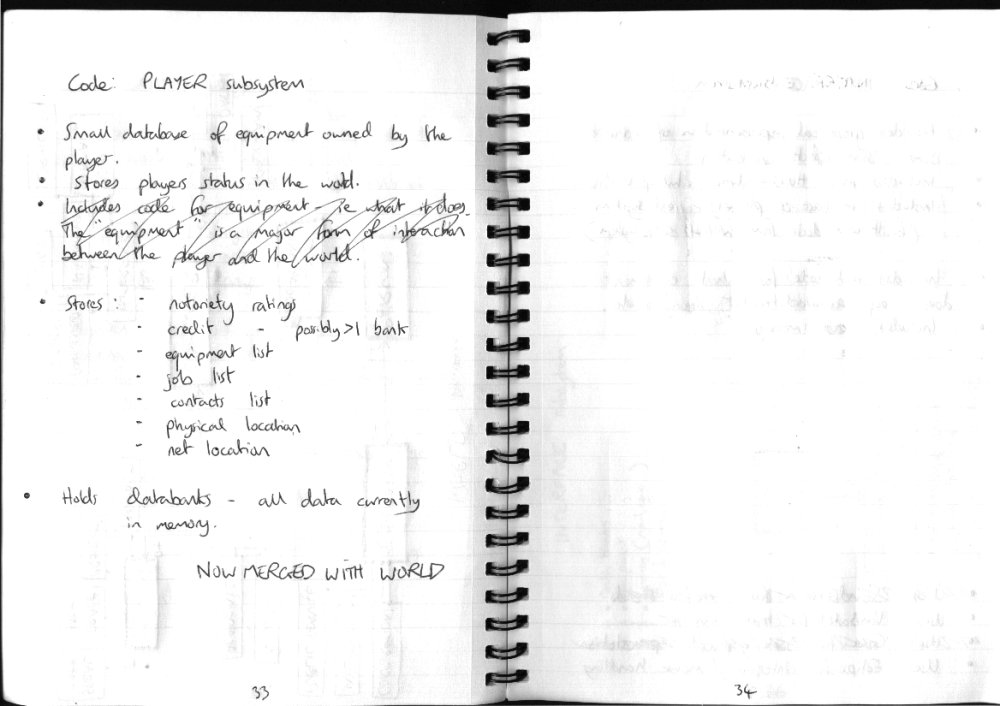 Code: PLAYER subsystem
• Small database of equipment owned by the
player.
• Stores players status in the world.
• Includes code for equipment - ie what it does.
The "equipment" is a major form of interaction
between the player and the world.
• Stores: - notoriety ratings
- credit - possibly >1 bank
- equipment list
- job list
- contacts list
- physical location
- net location
• Holds databanks - all data currently
in memory.
NOW MERGED WITH WORLD
33
34